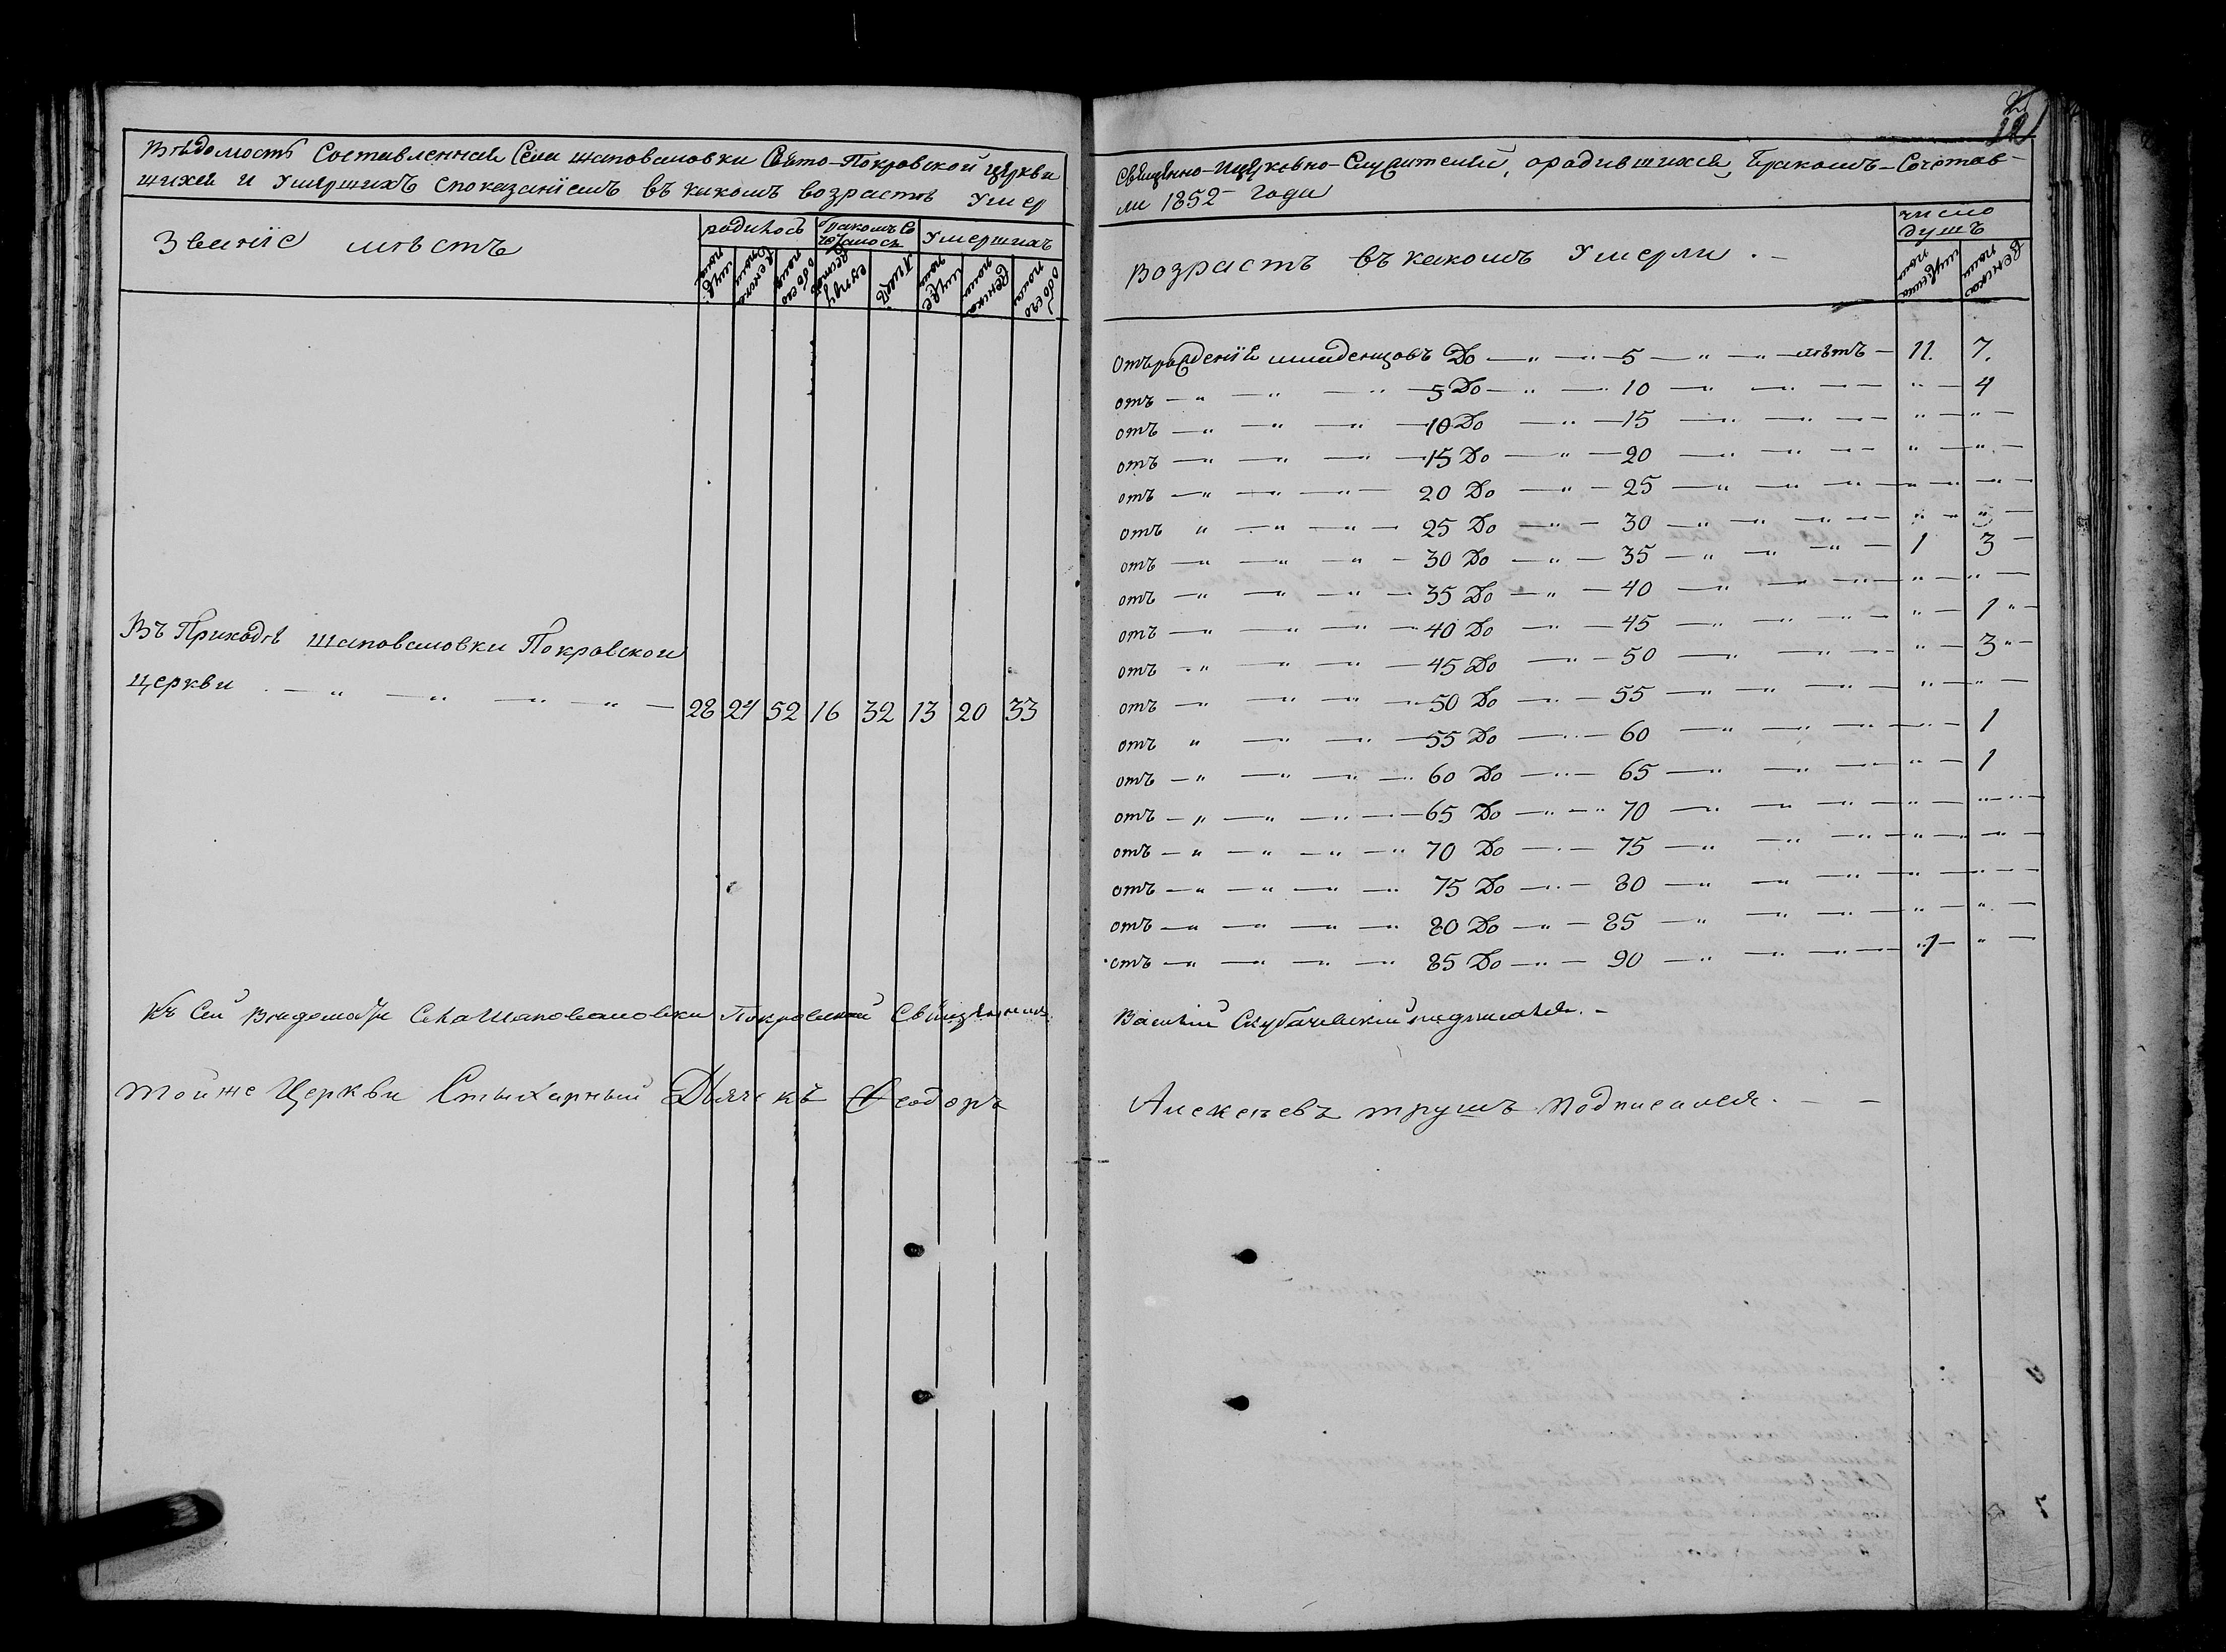 Вѣдомость Составленная Села шаповаловки Свято-Покровской церкви
щихся и Умершихъ споказаніемъ въ какомъ возрастѣ Умер
Званіе мѣстъ
родилось
бракомъ Со
Умершихъ
муж: пола
женска пола
обоего пола
супру
лицъ
муж пола
женска пола
обоего пола
Въ Приходѣ шаповаловки Покровской
церкви . — „ — „ — „ — „ — 28 24 52 16 32 13 20 33
Къ Сей Вѣдомости Села Шаповаловки Покровской Священникъ
тойже Церкви Стихарный Дьячекъ Феодоръ
Священно-Церковно-Служителей, орадившихся, бракомъ-Сочетав-
ли 1852 Года
Возрастъ въ какомъ Умерли . —
число
душъ
мужеска пола
женска пола
Отърожденія младенцовъ До — „ — 5 — „ — лѣтъ — 11. 7.
отъ — „ — „ — 5 До — „ — 10 — „ — „ — 4
отъ — „ — „ — 10 До — „ — 15 — „ — „ — „ —
отъ — „ — „ — 15 До — „ — 20 — „ — „ — „ —
отъ — „ — „ — 20 До — „ — 25 — „ — „ — „ —
отъ „ — „ — 25 До — „ — 30 — „ — „ — „ —
отъ — „ — „ — 30 До — „ — 35 — „ — „ — 1 3 —
отъ — „ — „ — 35 До — „ — 40 — „ — „ — „ —
отъ — „ — „ — 40 До — „ — 45 — „ — „ — 1 „ —
отъ — „ — „ — 45 До — „ — 50 — „ — „ — 3 „ —
отъ — „ — „ — 50 До — „ — 55 — „ — „ — „ —
отъ „ — „ — 55 До — „ — 60 — „ — „ — 1
отъ — „ — „ — 60 До — „ — 65 — „ — „ — 1
отъ — „ — „ — 65 До — „ — 70 — „ — „ — „ —
отъ — „ — „ — 70 До — „ — 75 — „ — „ — „ —
отъ — „ — „ — 75 До — „ — 80 — „ — „ — „ —
отъ — „ — „ — 80 До — „ — 85 — „ — „ — „ —
отъ — „ — „ — 85 До — „ — 90 — „ — „ — 1 — „ —
Василій Скубачевскій подписался. —
Алексеевъ трушъ Подписался. — —